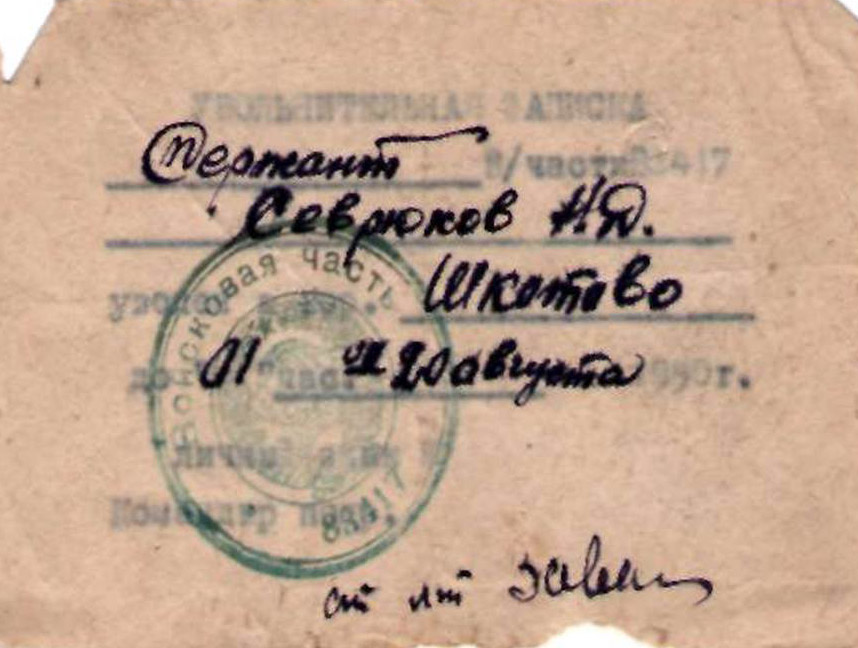 УВОЛЬНИТЕЛЬНАЯ ЗАПИСКА
Сержант в/часть 83417
Севрюков Н.Д.
уволен в гор. Шкотово
до "час" 20 августа 1950г.
личный знак
Командир подр.
Войсковая часть
83417
ст лт